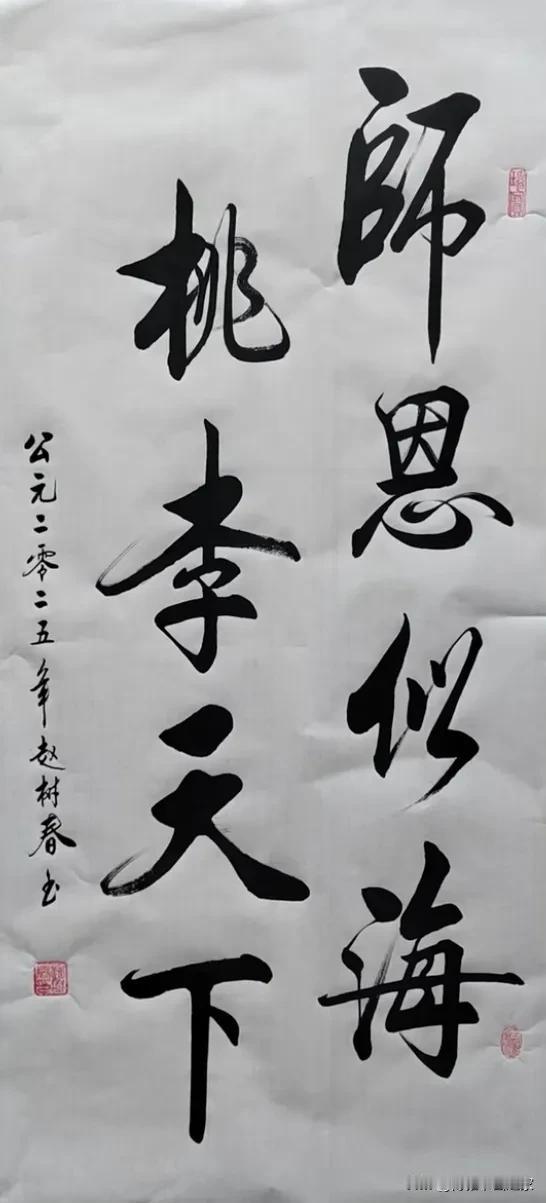 師恩似海
桃李天下
公元二零二五年赵树春书